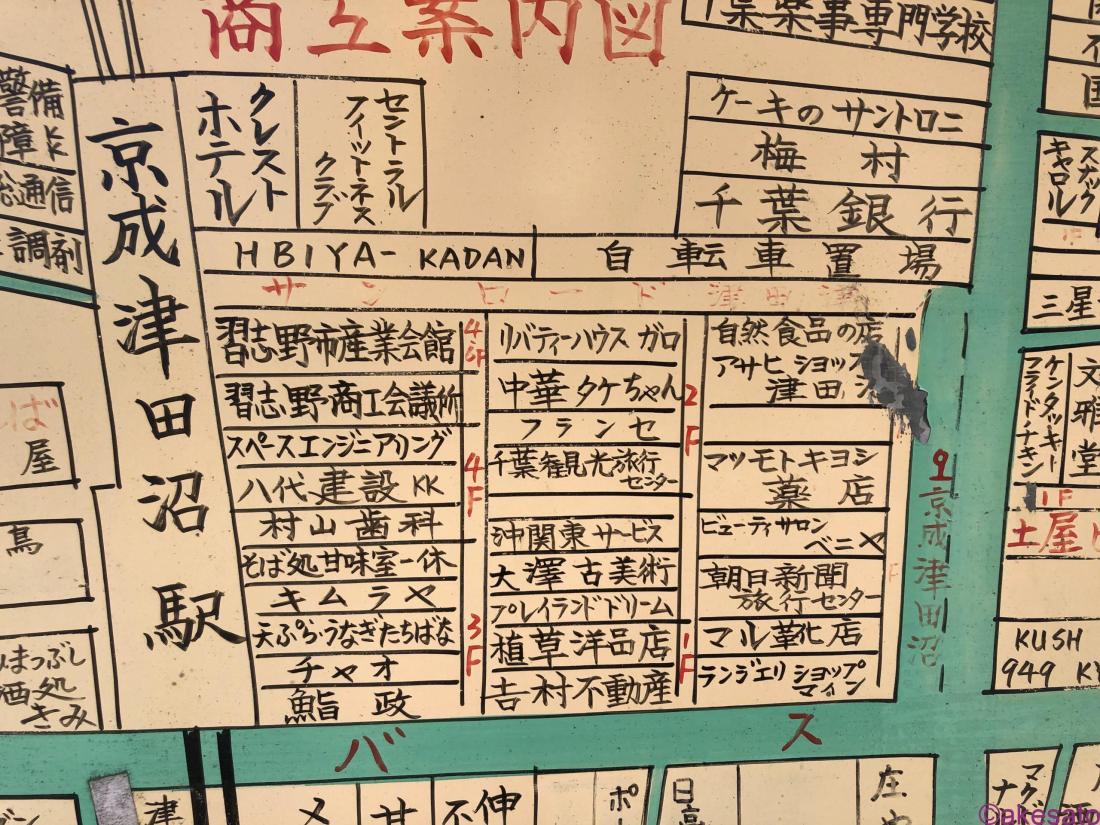 商工案内図
葉薬事専門学校
警備
障K
総通信
調剤
京成津田沼駅
クレスト
ホテル
セントラル
フィットネス
クラブ
ケーキのサントロニ
梅村
千葉銀行
HBIYA-KADAN
自転車置場
サンピード 津田沼
習志野市産業会館
習志野商工会議所
スペースエンジニアリング
八代建設KK
村山歯科
そば処甘味室一休
キムラヤ
天ぷら・うなぎたちばな
チャオ
鮨政
4
5F
4F
3F
リバティーハウス ガロ
中華タケちゃん
フランセ
千葉観光旅行
センター
沖関東サービス
大澤古美術
プレイランドドリーム
植草洋品店
吉村不動産
2F
1F
自然食品の店
アサヒショップ
津田
マツモトキヨシ
薬店
ビューティサロン
ベニヤ
朝日新聞
旅行センター
マル華化店
ランジェリショップ
マイン
京成津田沼
スナック
キャロル
三星
ケンタッキー
フライドチキン
文雅堂
1F
土屋
KUSH
949
ば
屋
まつぶし
酒処
きみ
バス
津
メ
甘
不
伸
ポ
日高
庄
マクド
ナ
©akesato